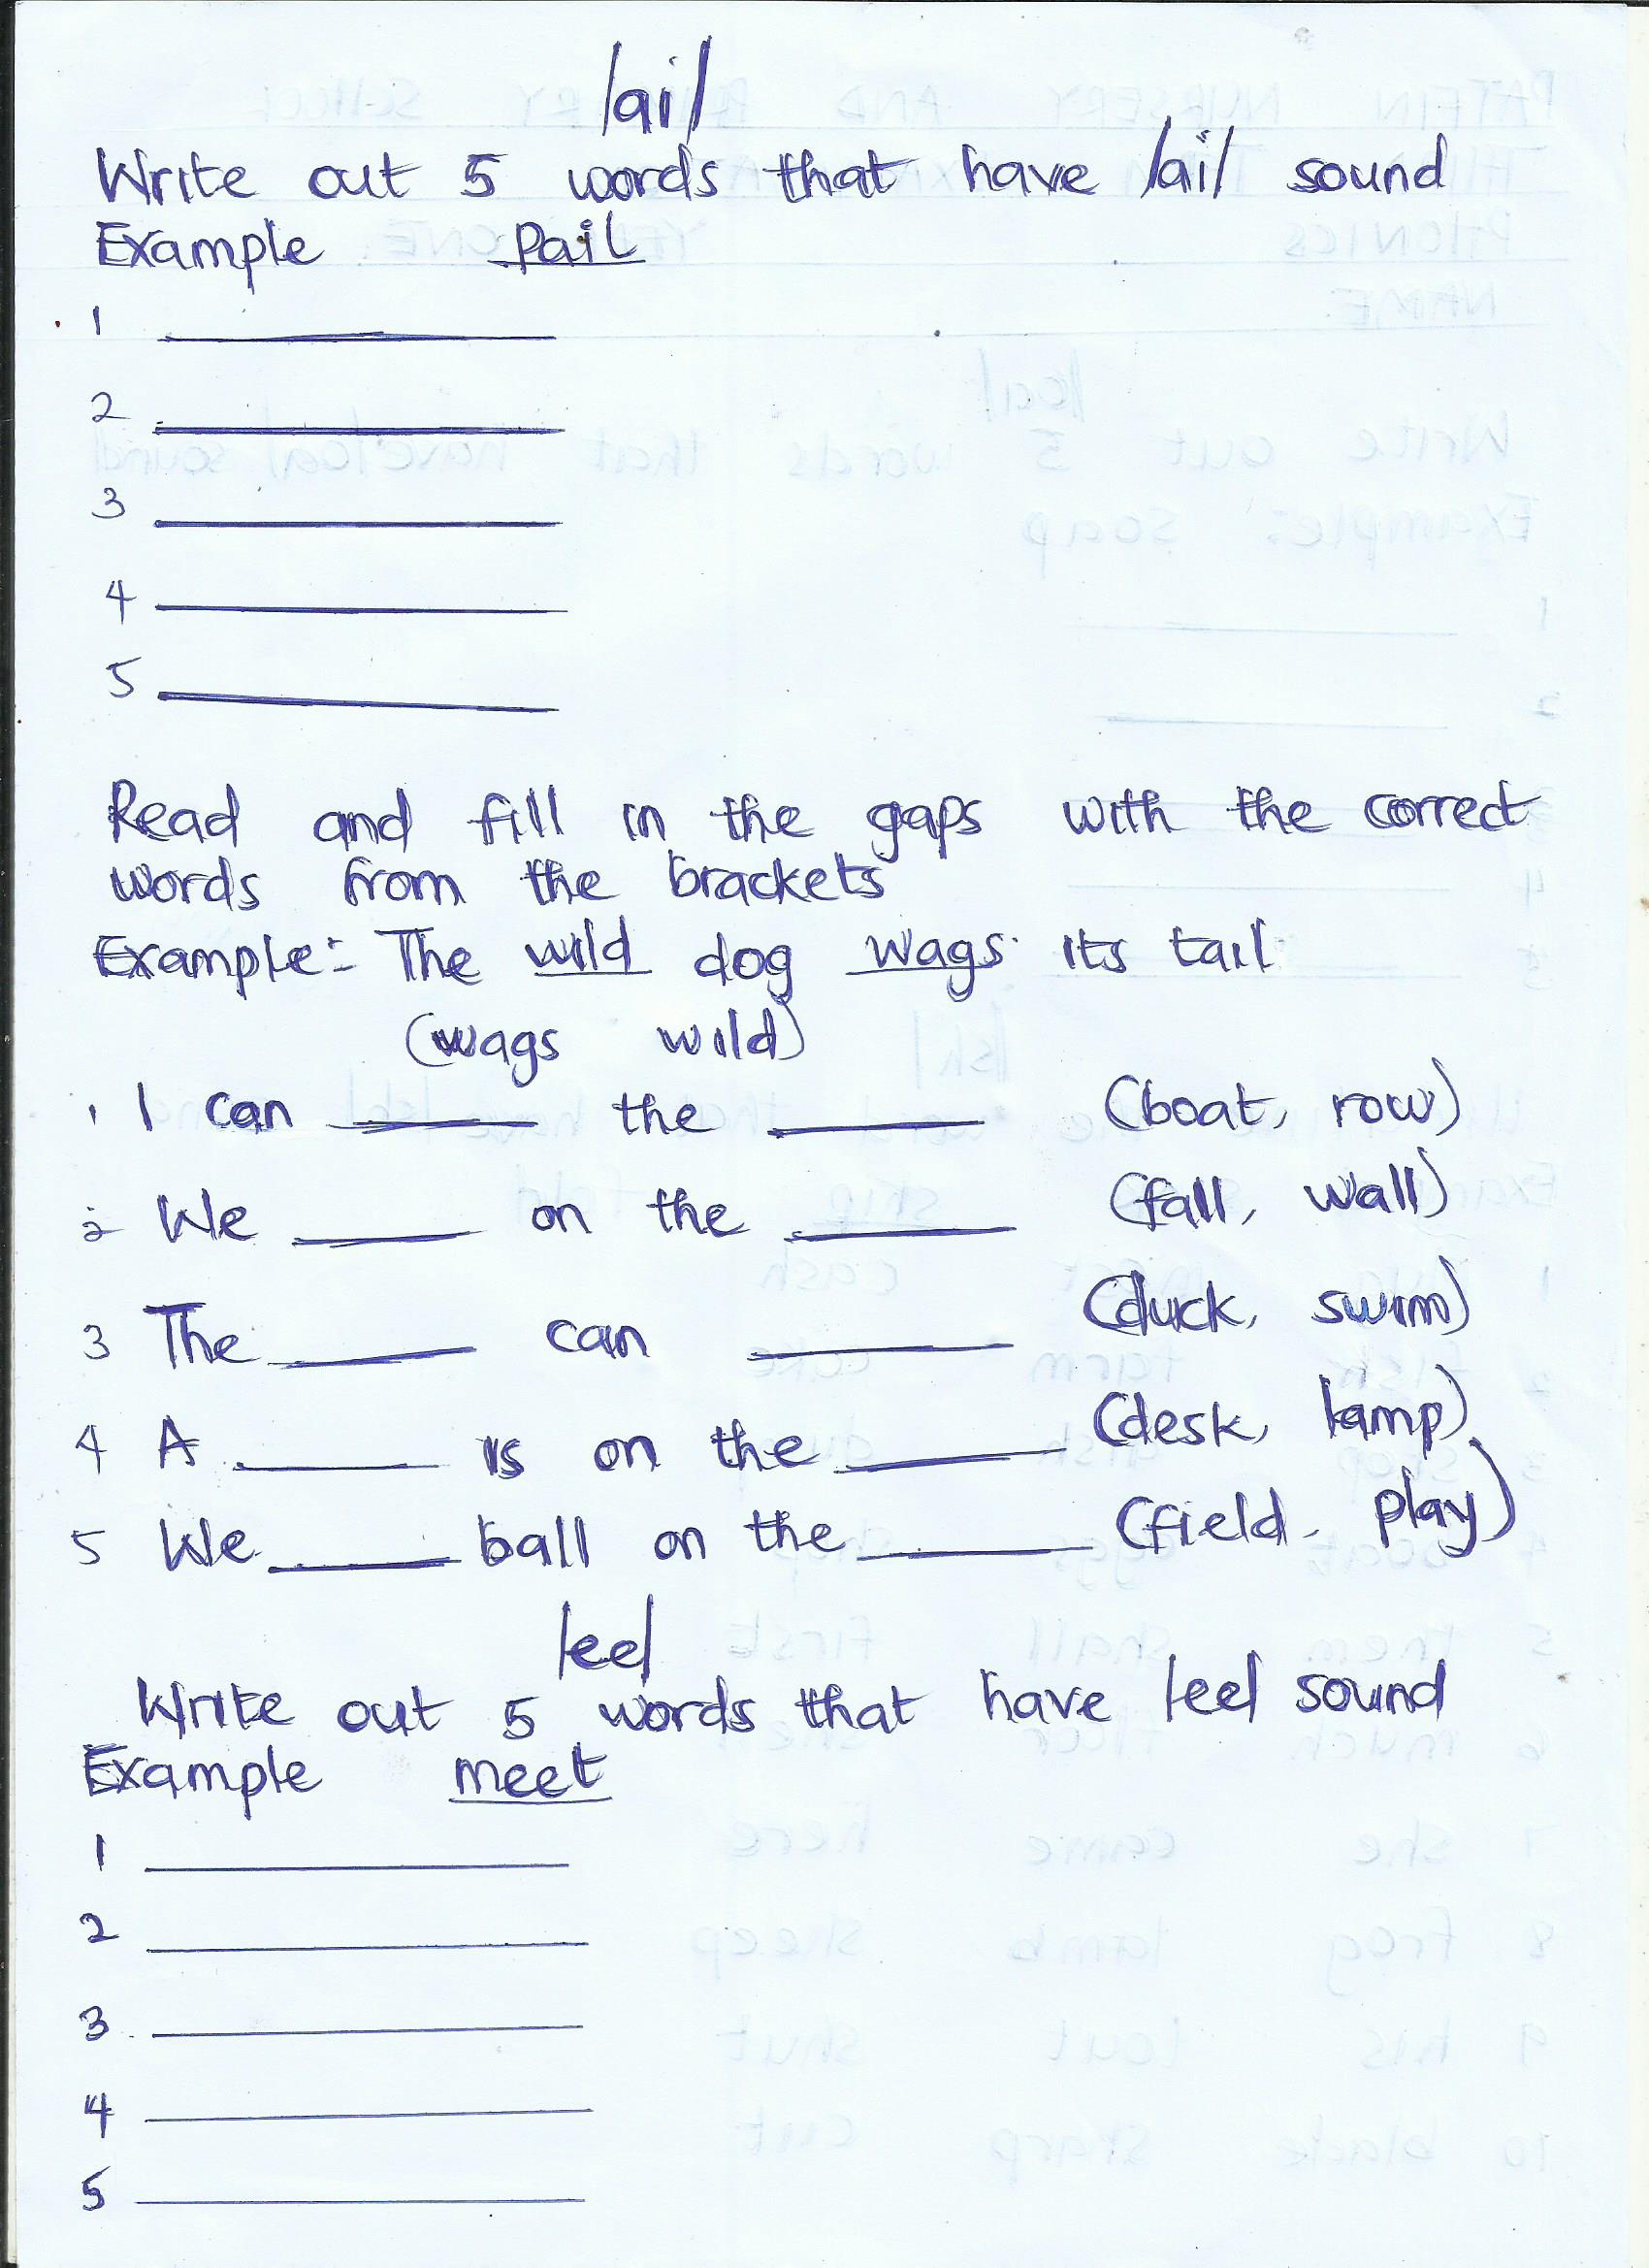 /ai/
Write out 5 words that have /ai/ sound
Example Pail
1 ____________
2 ____________
3 ____________
4 ____________
5 ____________
Read and fill in the gaps with the correct
words from the brackets
Example:- The wild dog wags its tail
(wags wild)
1 I can ______ the ______ (boat, row)
2 We ______ on the ______ (fall, wall)
3 The ______ can ______ (duck, swim)
4 A ______ is on the ______ (desk, lamp)
5 We ______ ball on the ______ (field, play)
/ee/
Write out 5 words that have /ee/ sound
Example meet
1 ____________
2 ____________
3 ____________
4 ____________
5 ____________